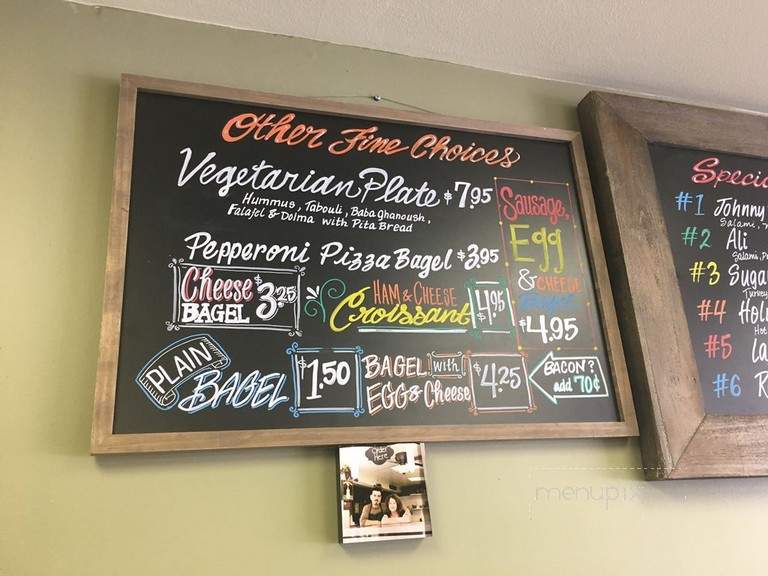 Other Fine Choices
Vegetarian Plate $7.95
Hummus, Tabouli, Baba Ghanoush,
Falafel & Dolma with Pita Bread
Pepperoni Pizza Bagel $3.95
Cheese
BAGEL
$3.25
HAM & CHEESE
Croissant
$4.95
Sausage,
Egg
& CHEESE
Bagel
$4.95
PLAIN
BAGEL
$1.50
BAGEL with
EGG & Cheese
$4.25
BACON?
add 70¢
#1 Johnny
#2 Ali
#3
#4
#5
#6
Order
Here
menupix